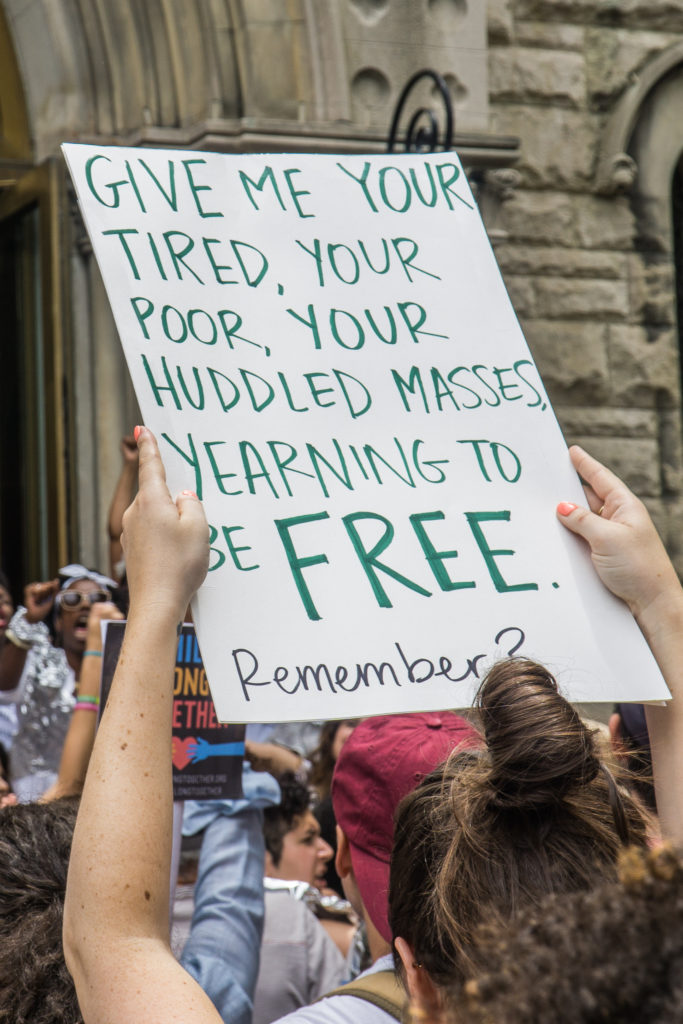 GIVE ME YOUR
TIRED, YOUR
POOR, YOUR
HUDDLED MASSES,
YEARNING TO
BE FREE.
Remember?
ONG
ETHER